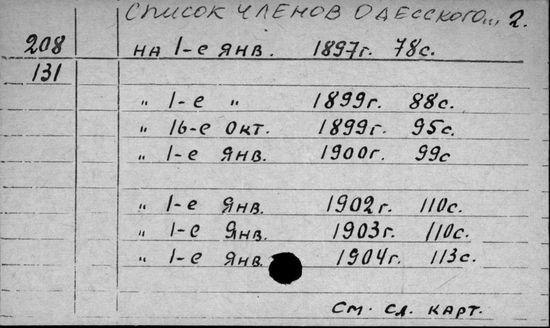 СПИСОК ЧЛЕНОВ ОДЕССКОГО... 2.
208 на 1-е янв. 1897г. 78с.
131
" 1-е " 1899г. 88с.
" 16-е Окт. 1899г. 95с.
" 1-е Янв. 1900г. 99с
" 1-е Янв. 1902г. 110с.
" 1-е Янв. 1903г. 110с.
" 1-е Янв. 1904г. 113с.
См. сл. карт.